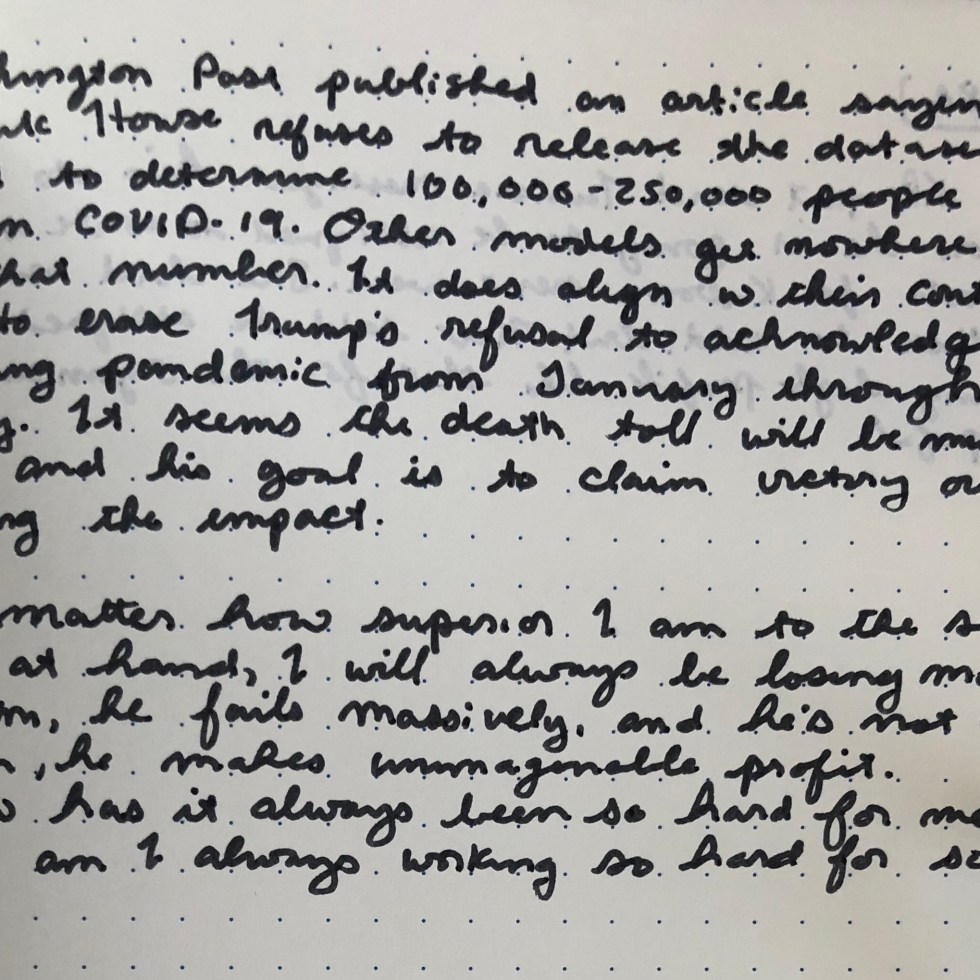 hington Post published an article sayin
House refuses to release the datase
to determine 100,000-250,000 people
m COVID-19. Other models get nowhere
hat number. It does align w their cont
to erase Trump's refusal to acknowledg
ng pandemic from January through
y. It seems the death toll will be mu
and his goal is to claim victory ov
ng the impact.
matter how superior I am to the s
at hand, I will always be losing mo
m, he fails massively, and he's not
, he makes unimaginable profit.
has it always been so hard for me
am I always working so hard for so